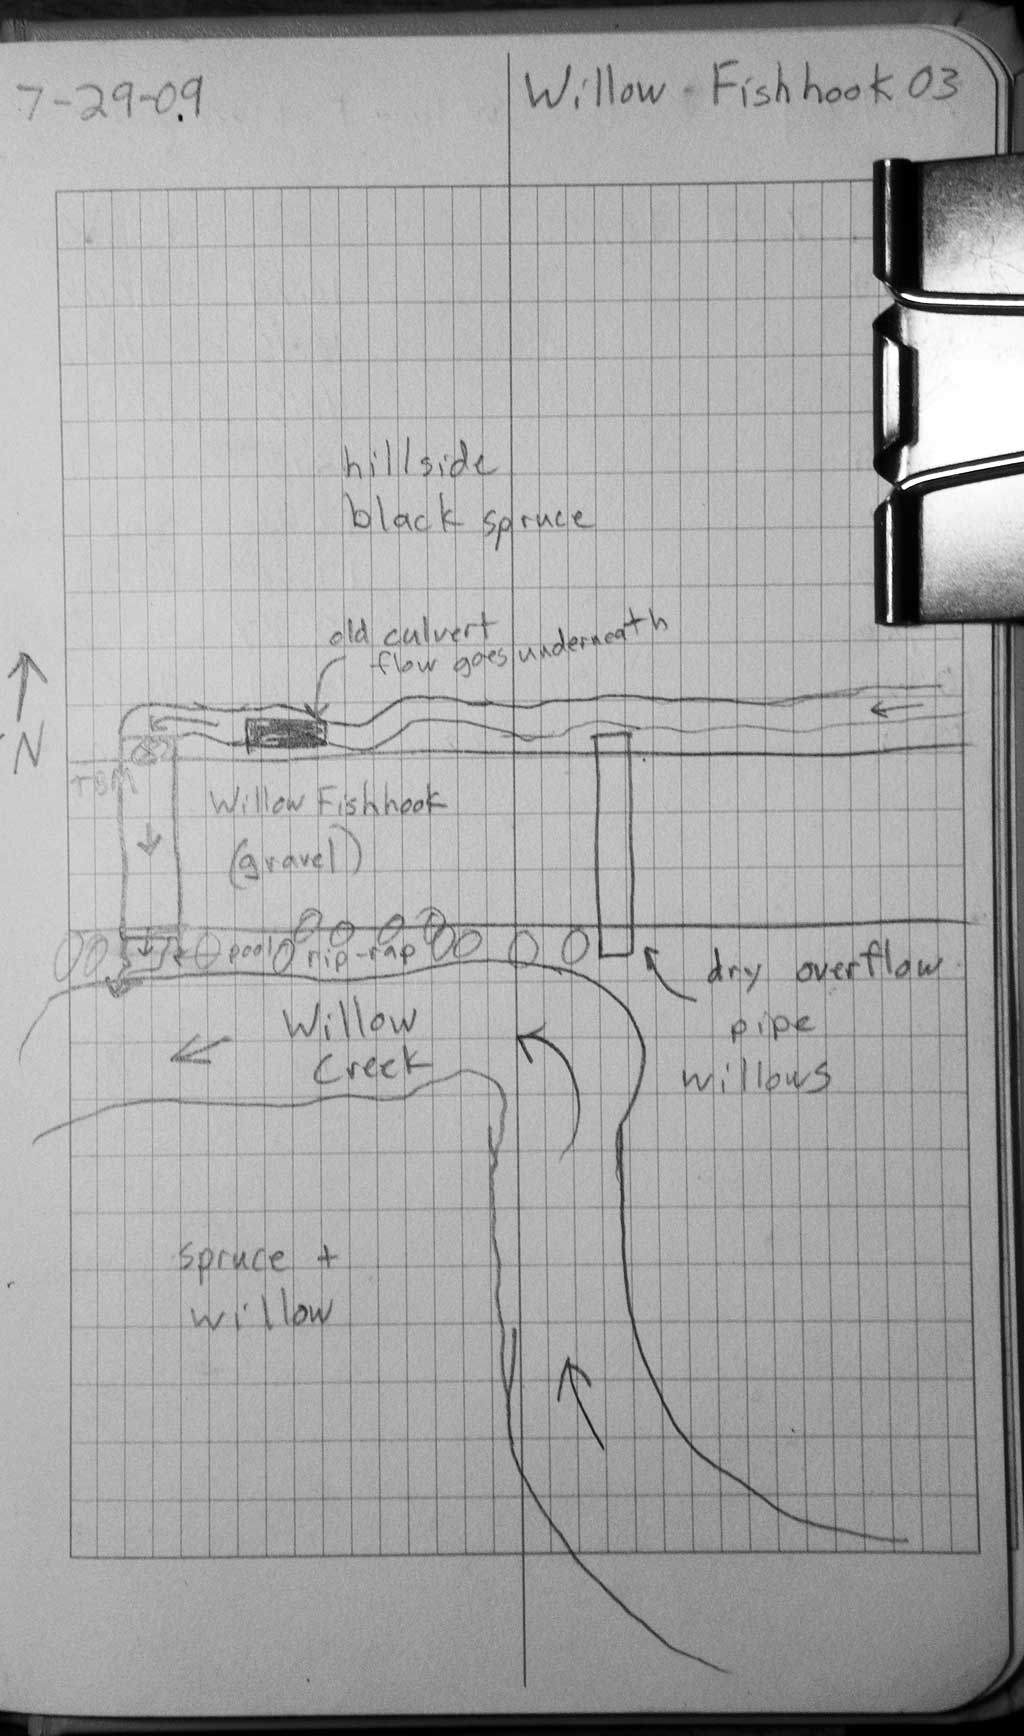 7-29-09
Willow-Fishhook 03
hillside
black spruce
old culvert
flow goes underneath
N
TBM
Willow Fishhook
(gravel)
pool rip-rap
dry overflow
pipe
willows
Willow
Creek
spruce +
willow